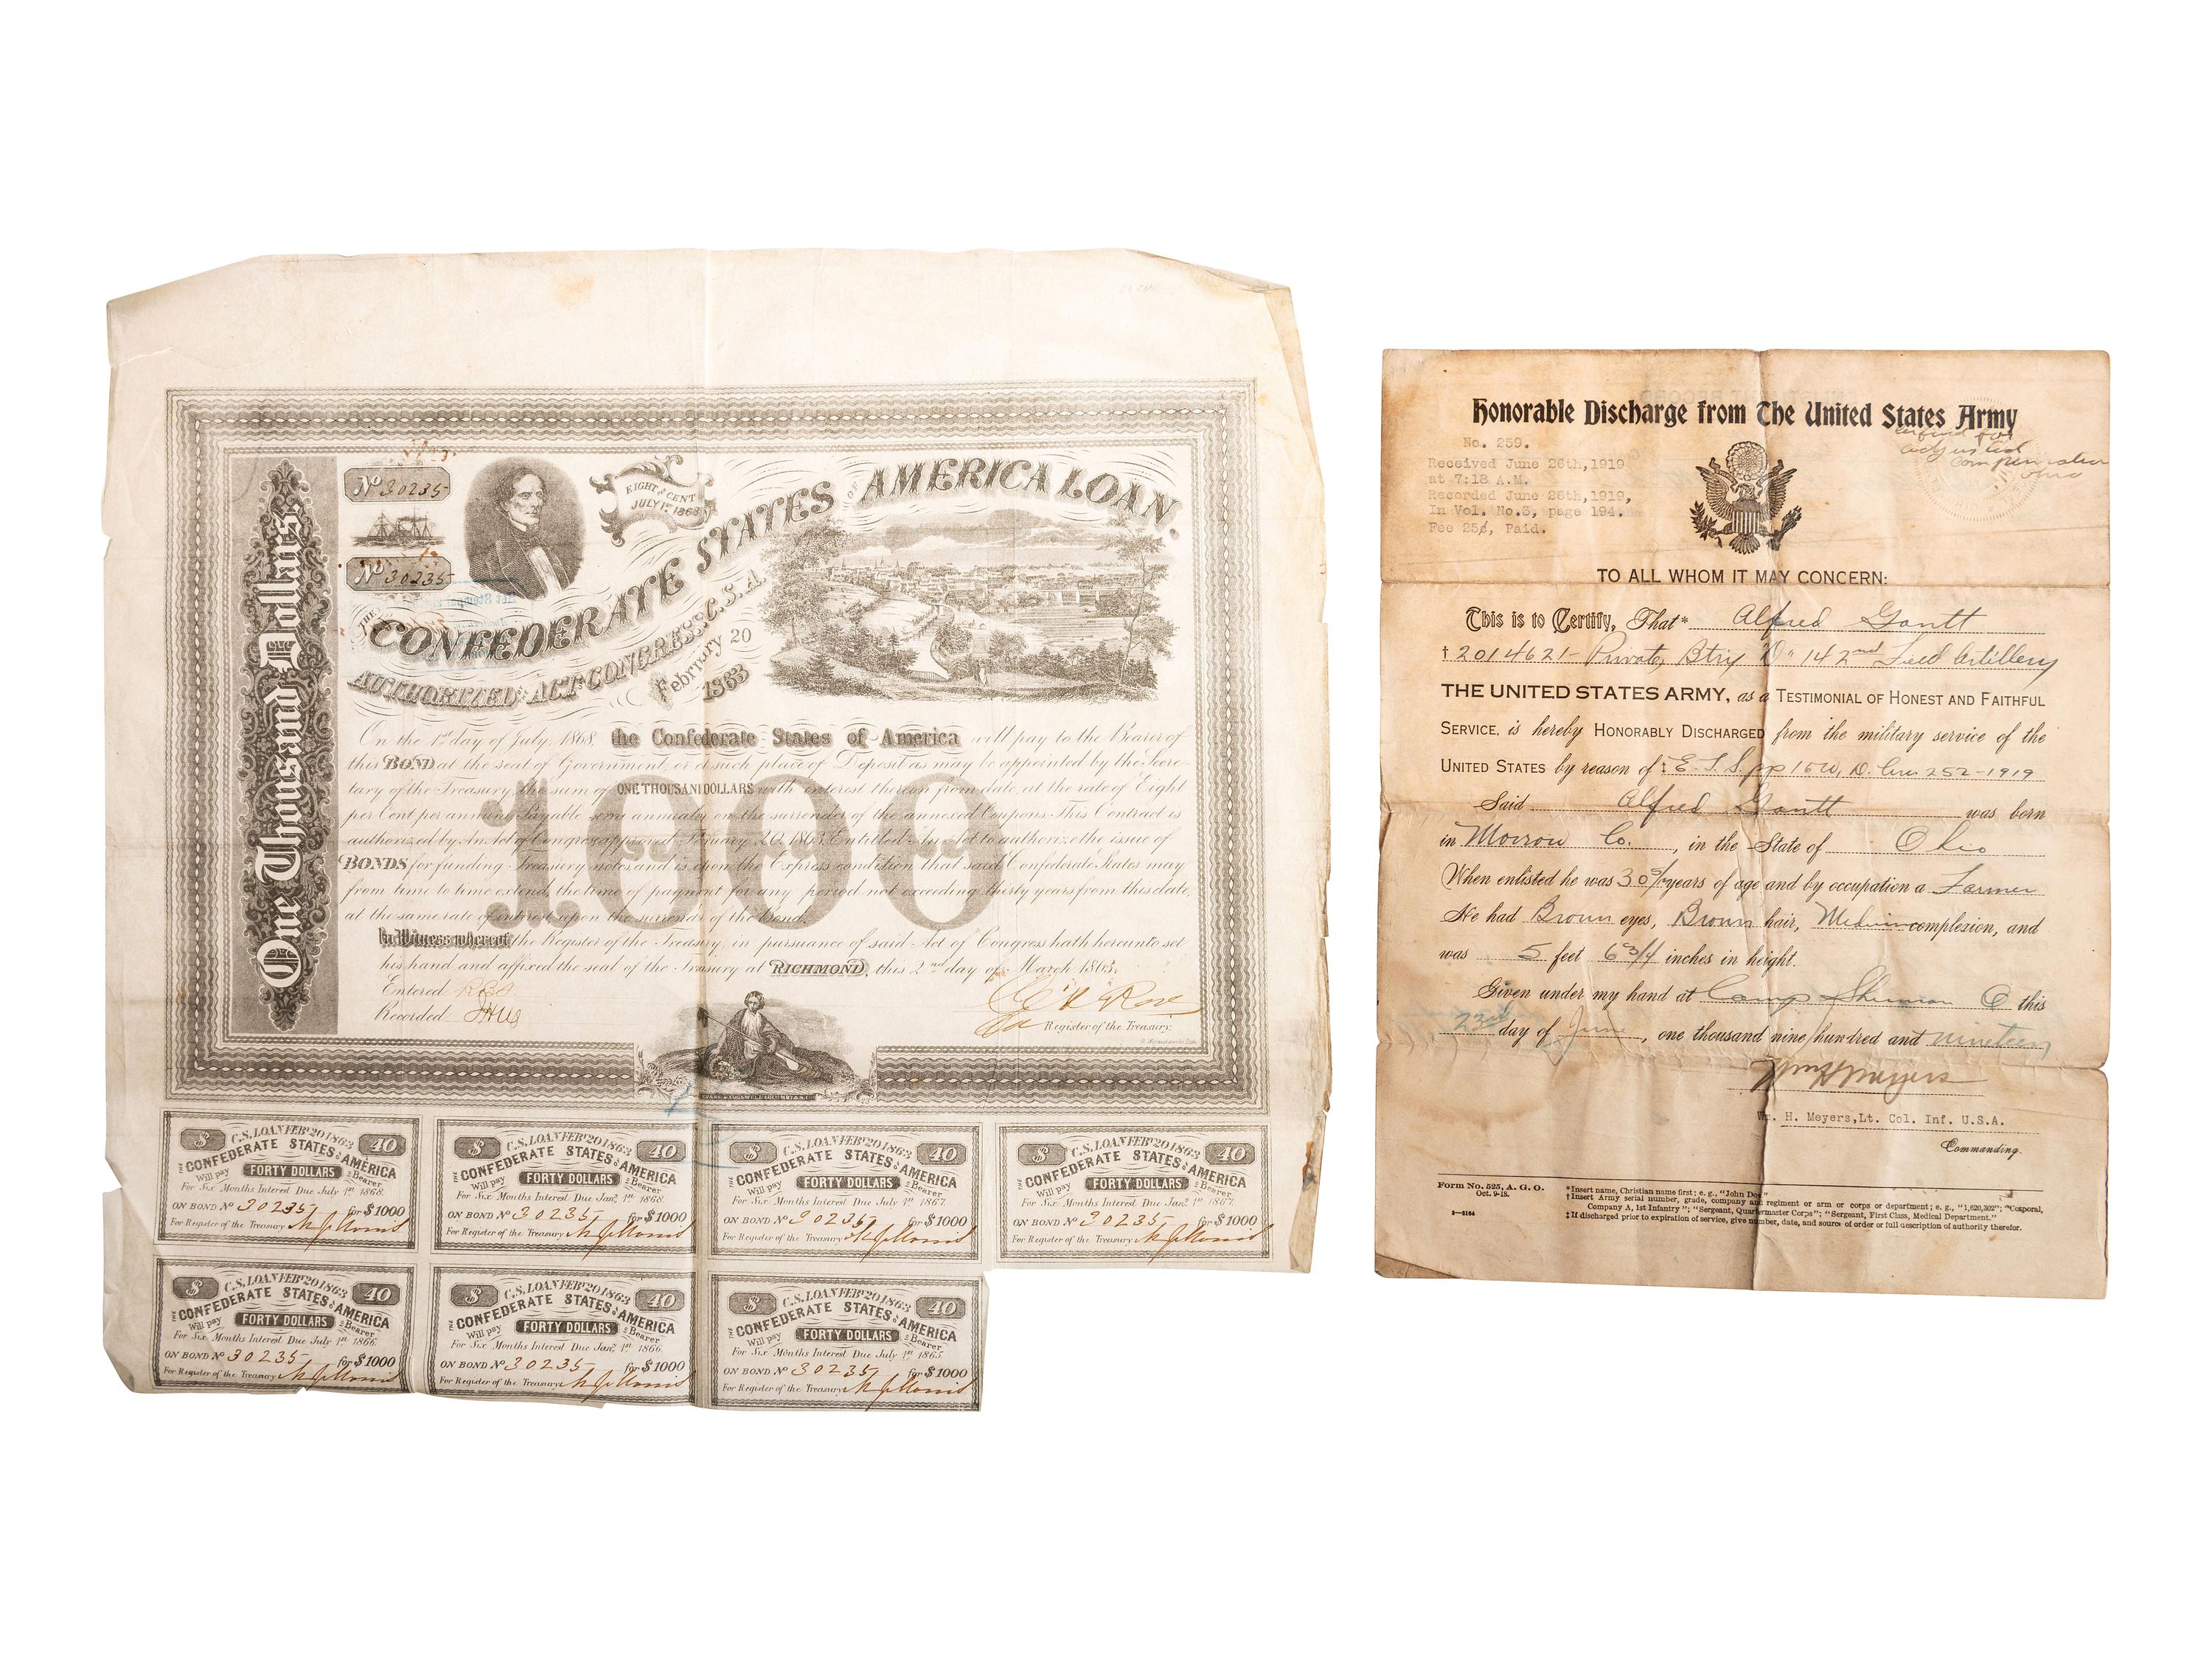 One Thousand Dollars.
No 30235
No 30235
EIGHT PR CENT
JULY 1st 1868
THE CONFEDERATE STATES OF AMERICA LOAN.
AUTHORIZED BY ACT OF CONGRESS, C.S.A.
February 20
1863
On the 1st day of July, 1868, the Confederate States of America will pay to the Bearer of
this BOND at the seat of Government, or at such place of Deposit as may be appointed by the Secre-
tary of the Treasury, the sum of ONE THOUSAND DOLLARS with interest thereon from date, at the rate of Eight
per Cent per annum Payable semi annually on the surrender of the annexed Coupons. This Contract is
authorized by An Act of Congress approved February 20, 1863, Entitled An Act to authorize the issue of
BONDS for funding Treasury notes and is upon the Express condition that said Confederate States may
from time to time extend the time of payment for any period not exceeding thirty years from this date,
at the same rate of interest upon the surrender of the Bond.
1000
In Witness whereof, the Register of the Treasury, in pursuance of said Act of Congress hath hereunto set
his hand and affixed the seal of the Treasury at RICHMOND, this 2nd day of March 1863.
Entered
Recorded
Register of the Treasury.
$ C.S. LOAN FEBY 20 1863 40
THE CONFEDERATE STATES OF AMERICA
Will pay FORTY DOLLARS to Bearer
For Six Months Interest Due July 1st 1868.
ON BOND No 30235 for $1000
For Register of the Treasury
$ C.S. LOAN FEBY 20 1863 40
THE CONFEDERATE STATES OF AMERICA
Will pay FORTY DOLLARS to Bearer
For Six Months Interest Due Jany 1st 1868.
ON BOND No 30235 for $1000
For Register of the Treasury
$ C.S. LOAN FEBY 20 1863 40
THE CONFEDERATE STATES OF AMERICA
Will pay FORTY DOLLARS to Bearer
For Six Months Interest Due July 1st 1867.
ON BOND No 30235 for $1000
For Register of the Treasury
$ C.S. LOAN FEBY 20 1863 40
THE CONFEDERATE STATES OF AMERICA
Will pay FORTY DOLLARS to Bearer
For Six Months Interest Due Jany 1st 1867.
ON BOND No 30235 for $1000
For Register of the Treasury
$ C.S. LOAN FEBY 20 1863 40
THE CONFEDERATE STATES OF AMERICA
Will pay FORTY DOLLARS to Bearer
For Six Months Interest Due July 1st 1866.
ON BOND No 30235 for $1000
For Register of the Treasury
$ C.S. LOAN FEBY 20 1863 40
THE CONFEDERATE STATES OF AMERICA
Will pay FORTY DOLLARS to Bearer
For Six Months Interest Due Jany 1st 1866.
ON BOND No 30235 for $1000
For Register of the Treasury
$ C.S. LOAN FEBY 20 1863 40
THE CONFEDERATE STATES OF AMERICA
Will pay FORTY DOLLARS to Bearer
For Six Months Interest Due July 1st 1865.
ON BOND No 30235 for $1000
For Register of the Treasury
Honorable Discharge from The United States Army
No. 259.
Received June 26th, 1919
at 7:18 A.M.
Recorded June 26th, 1919,
In Vol. No.3, page 194.
Fee 25¢, Paid.
for
adjusted
compensation
Ohio
TO ALL WHOM IT MAY CONCERN:
This is to Certify, That* Alfred Gantt
† 2014621- Private, Btry "D" 142nd Field Artillery
THE UNITED STATES ARMY, as a TESTIMONIAL OF HONEST AND FAITHFUL
SERVICE, is hereby HONORABLY DISCHARGED from the military service of the
UNITED STATES by reason of ‡ E.T.S. pp 150, D. Circ 252-1919
Said Alfred Gantt was born
in Morrow Co., in the State of Ohio
When enlisted he was 30 years of age and by occupation a Farmer
He had Brown eyes, Brown hair, Medium complexion, and
was 5 feet 6 3/4 inches in height.
Given under my hand at Camp Sherman O this
23rd day of June, one thousand nine hundred and nineteen
Wm H Meyers
Wm. H. Meyers, Lt. Col. Inf. U.S.A.
Commanding.
Form No. 525, A. G. O.
Oct. 9-18.
3-3164
*Insert name, Christian name first; e. g., "John Doe."
†Insert Army serial number, grade, company and regiment or arm or corps or department; e. g., "1,620,302"; "Corporal,
Company A, 1st Infantry"; "Sergeant, Quartermaster Corps"; "Sergeant, First Class, Medical Department."
‡If discharged prior to expiration of service, give number, date, and source of order or full description of authority therefor.